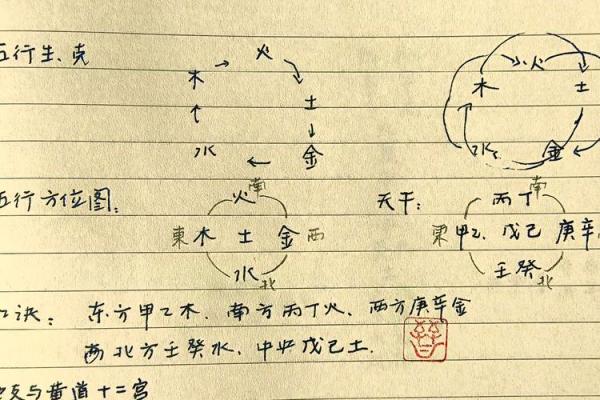 五行生、克
火 火
木 木 土
土
水 金 水 金
五行方位图：
火南
東木 土 金西
水北
天干：
丙丁南
東甲乙 戊己 庚辛
壬癸北
口诀： 东方甲乙木、南方丙丁火、西方庚辛金
北方壬癸水、中央戊己土.
地支与黄道十二宫